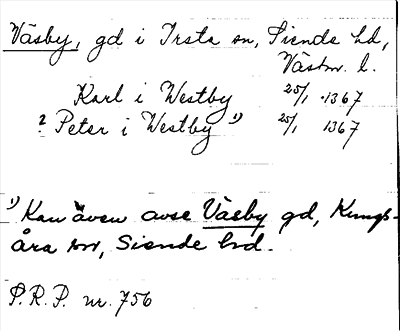 Väsby, gd i Irsta sn, Siende hd,
Västm. l.
Karl i Westby 25/1 1367
? Peter i Westby 1) 25/1 1367
1) Kan även avse Väsby gd, Kungs-
åra sn, Siende hd.
P.R.P. nr. 756